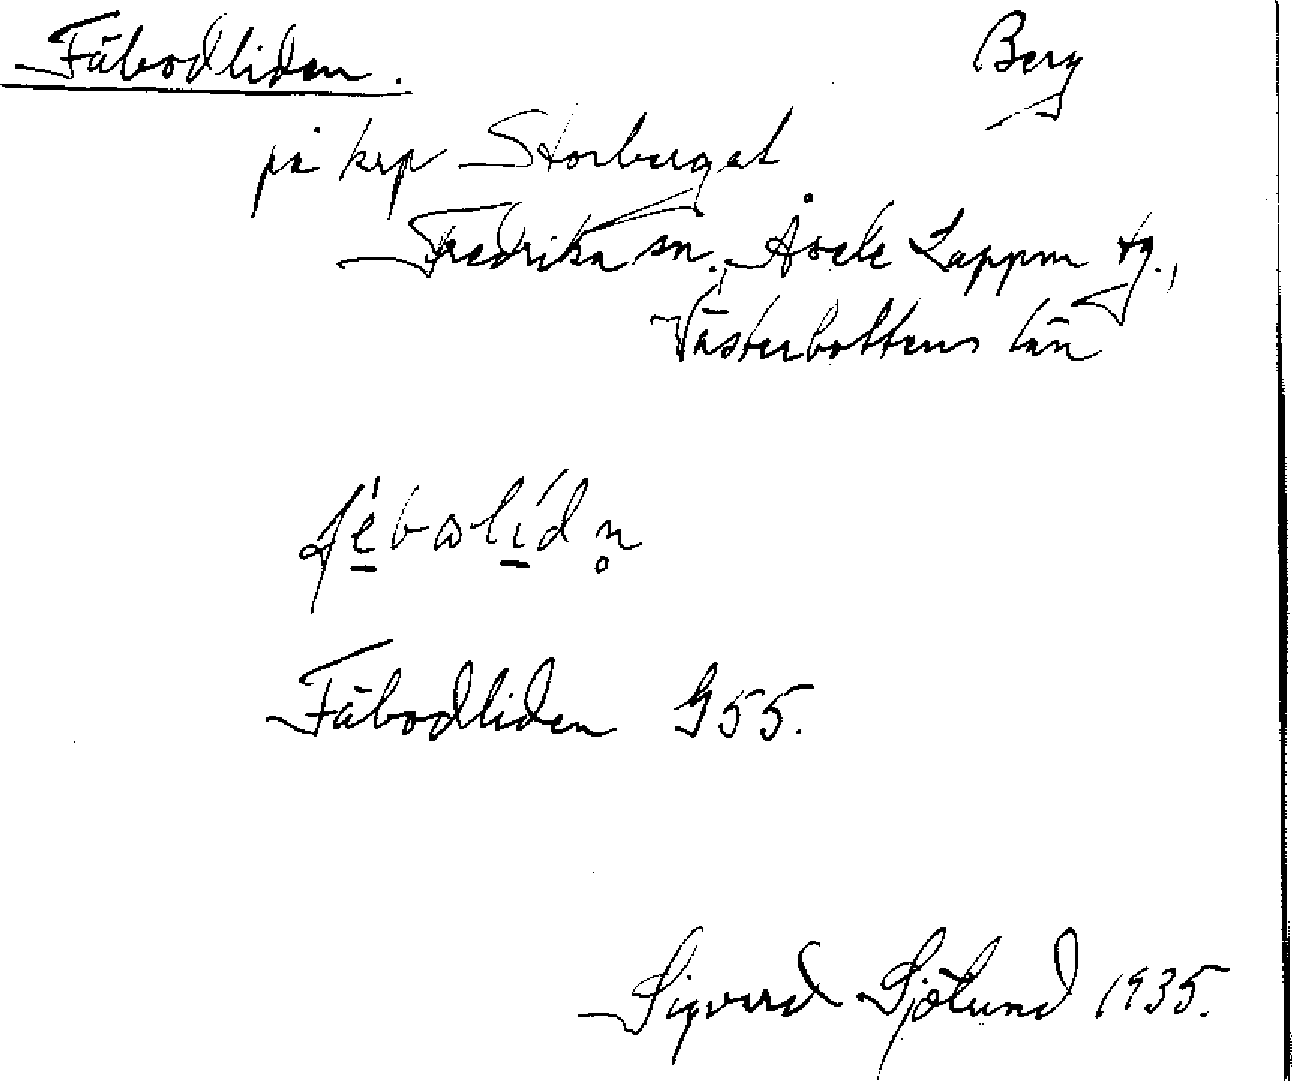 Fäbodliden. Berg
på krp Storberget
Fredrika sn., Åsele Lappm tg.,
Västerbottens län
Fäbodliden G55.
Sigvard Sjölund 1935.